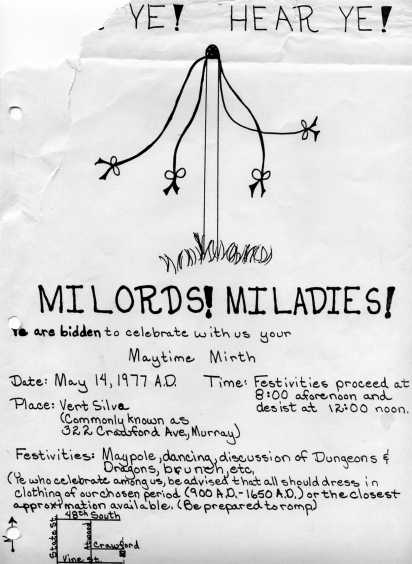 YE! HEAR YE!
MILORDS! MILADIES!
Ye are bidden to celebrate with us your
Maytime Mirth
Date: May 14, 1977 A.D. Time: Festivities proceed at
8:00 aforenoon and
desist at 12:00 noon.
Place: Vert Silva
(Commonly known as
322 Crawford Ave, Murray)
Festivities: Maypole, dancing, discussion of Dungeons &
Dragons, brunch, etc,
(Ye who celebrate among us, be advised that all should dress in
clothing of our chosen period (900 A.D.-1650 A.D.) or the closest
approximation available. (Be prepared to romp)
48th South
State St.
Crawford
Vine St.